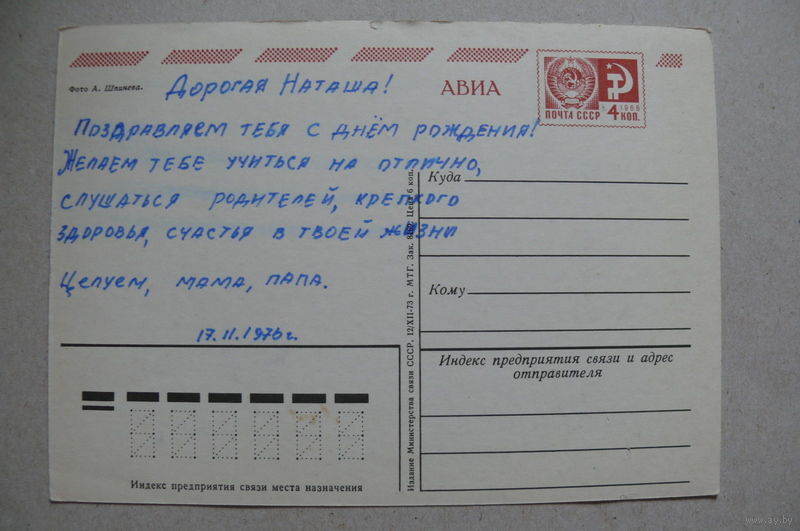 Фото А. Шпинева.
Дорогая Наташа!
АВИА
1966
ПОЧТА СССР 4 КОП.
Поздравляем тебя с днём рождения!
Желаем тебе учиться на отлично,
слушаться родителей, крепкого
здоровья, счастья в твоей жизни
Целуем, мама, папа.
17.II.1976г.
Издание Министерства связи СССР. 12/XII-73 г. МТГ. Зак. Цена 6 коп.
Куда
Кому
Индекс предприятия связи и адрес
отправителя
Индекс предприятия связи места назначения
www.ay.by